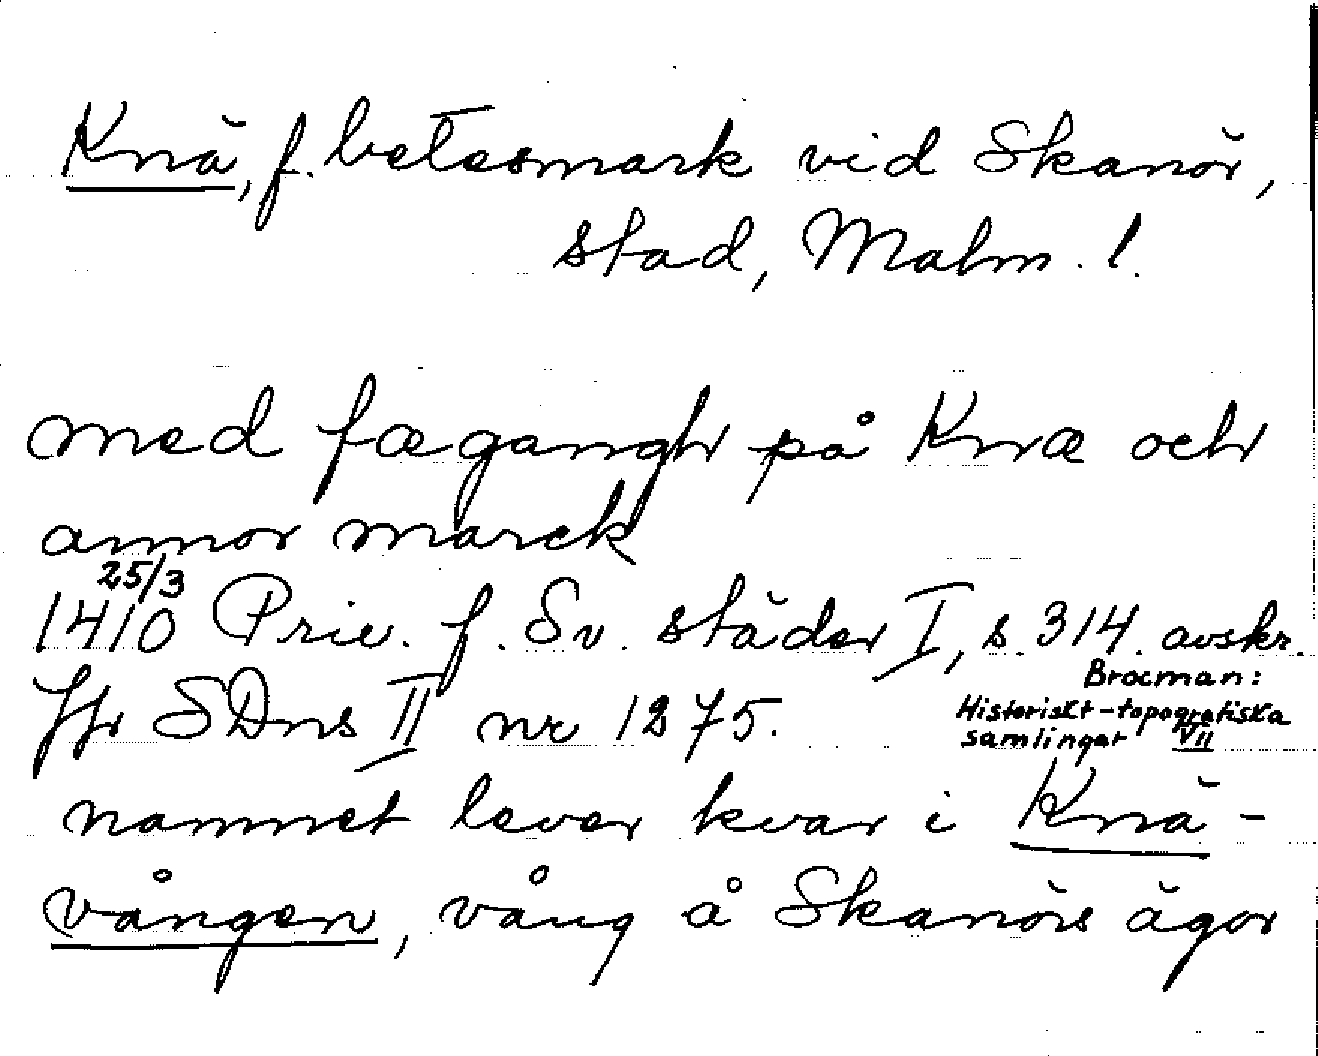 Knä, f. betesmark vid Skanör,
stad, Malm. l.
med fægangh på Knæ och
annor marck
25/3
1410 Priv. f. Sv. städer I, s. 314. avskr.
Brocman:
Jfr SDns II nr 1275.
Historiskt-topografiska
samlingar VII
namnet lever kvar i Knä-
vången, vång å Skanörs ägor